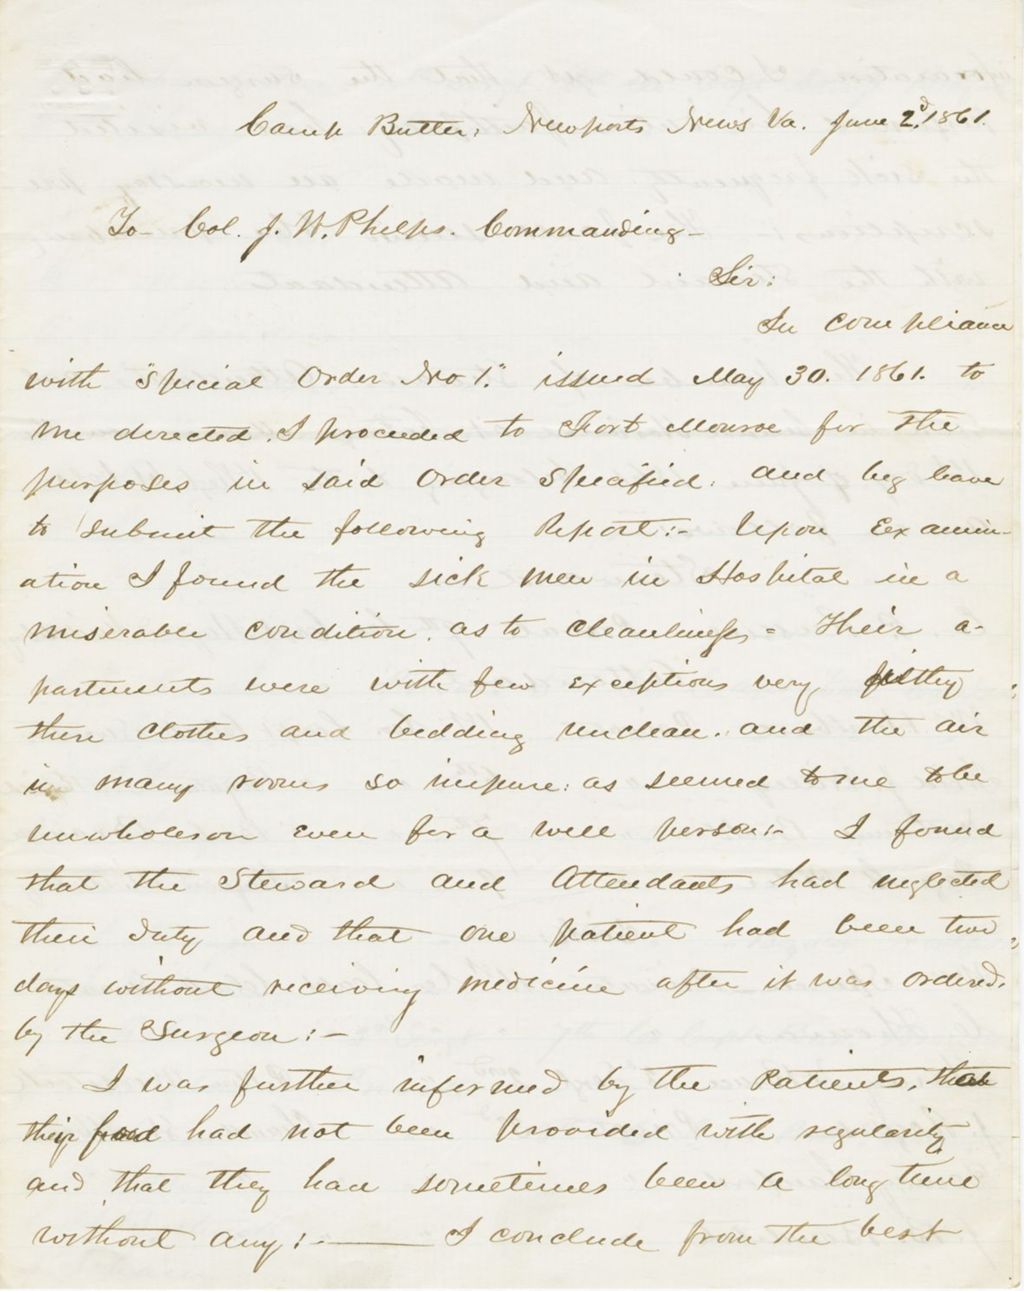 Camp Butler, Newports News Va. June 2d. 1861.
To Col. J. W. Phelps. Commanding-
Sir:
In compliance
with "Special Order No 1." issued May 30. 1861. to
me directed. I proceeded to Fort Monroe for the
purposes in said Order Specified. and beg leave
to submit the following Report:- Upon Examin-
ation I found the sick men in Hospital in a
miserable condition. as to cleanliness - Their a-
partments were with few exceptions very filthy
there clothes and bedding unclean. and the air
in many rooms so impure: as seemed to me to be
unwholesom even for a well person:- I found
that the Steward and Attendants had neglected
their duty and that one patient had been two
days without receiving medicine after it was ordered.
by the Surgeon:-
I was further informed by the Patients, that
their food had not been provided with regularity
and that they had sometimes been a long time
without any:- I conclude from the best